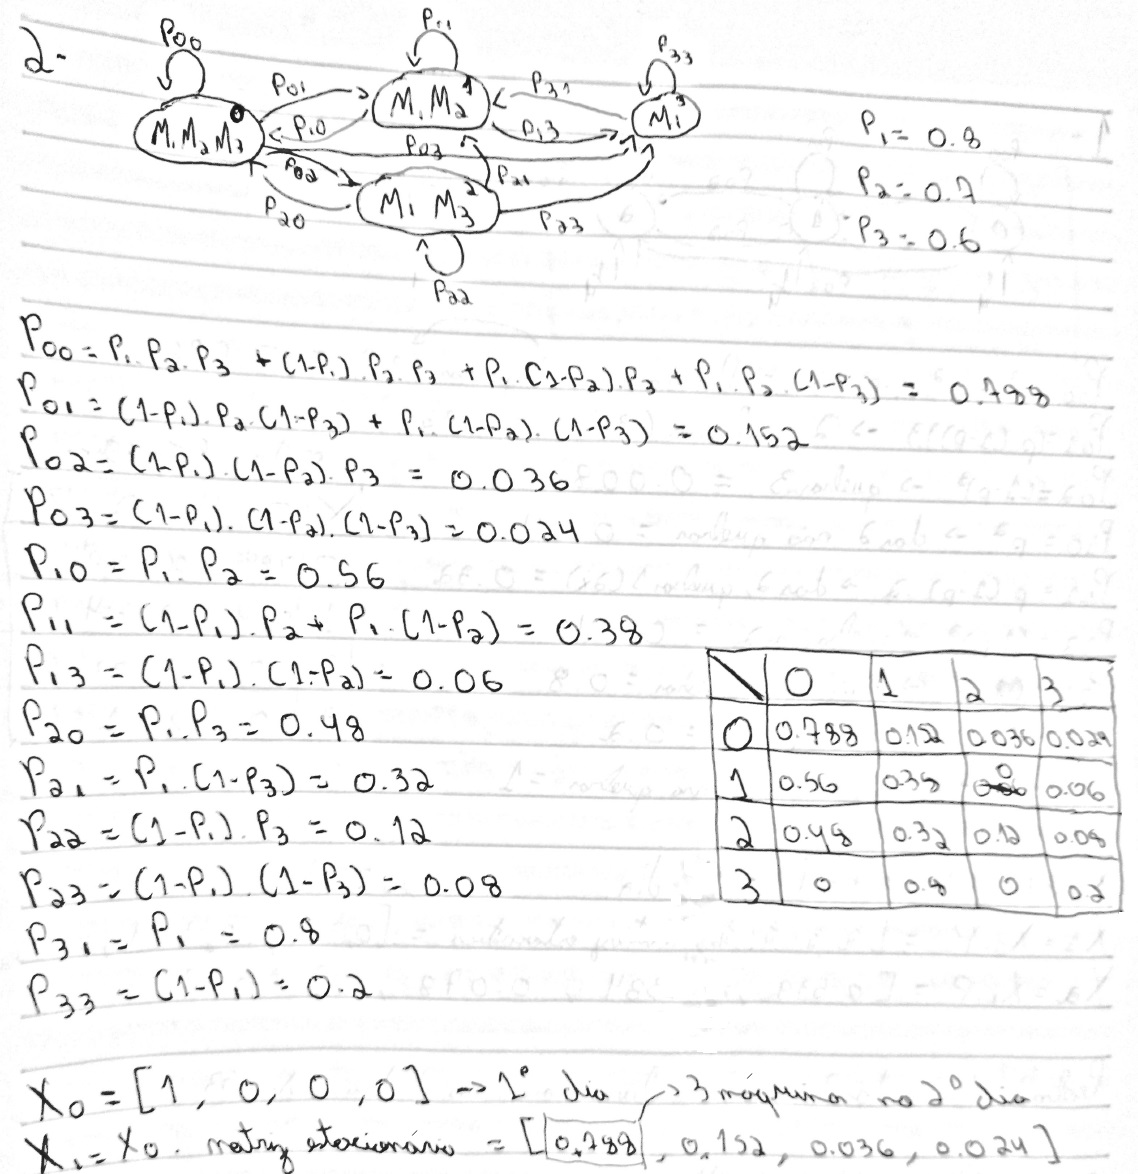 2-
P00
P11
P33
P01
M1 M2 1
P31
M1 3
P1 = 0.8
M1 M2 M3 0
P10
P13
P03
P02
P21
P2 = 0.7
M1 M3 2
P20
P23
P3 = 0.6
P22
P00 = P1. P2. P3 + (1-P1). P2. P3 + P1. (1-P2). P3 + P1. P2. (1-P3) = 0.788
P01 = (1-P1). P2. (1-P3) + P1. (1-P2). (1-P3) = 0.152
P02 = (1-P1). (1-P2). P3 = 0.036
P03 = (1-P1). (1-P2). (1-P3) = 0.024
P10 = P1. P2 = 0.56
P11 = (1-P1). P2 + P1. (1-P2) = 0.38
P13 = (1-P1). (1-P2) = 0.06
P20 = P1. P3 = 0.48
P21 = P1. (1-P3) = 0.32
P22 = (1-P1). P3 = 0.12
P23 = (1-P1). (1-P3) = 0.08
P31 = P1 = 0.8
P33 = (1-P1) = 0.2
0 1 2 3
0 0.788 0.152 0.036 0.024
1 0.56 0.38 0 0.06
2 0.48 0.32 0.12 0.08
3 0 0.8 0 0.2
X0 = [1, 0, 0, 0] -> 1º dia -> 3 máquinas no 2º dia
X1 = X0. matriz estacionário = [0.788, 0.152, 0.036, 0.024]